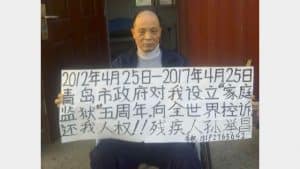 2012年4月25日—2017年4月25日
青岛市政府对我设立“家庭
监狱”五周年,向全世界控诉
还我人权!!残疾人孙举昌